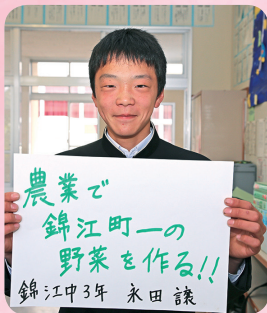 農業で
錦江町一の
野菜を作る!!
錦江中3年 永田 譲